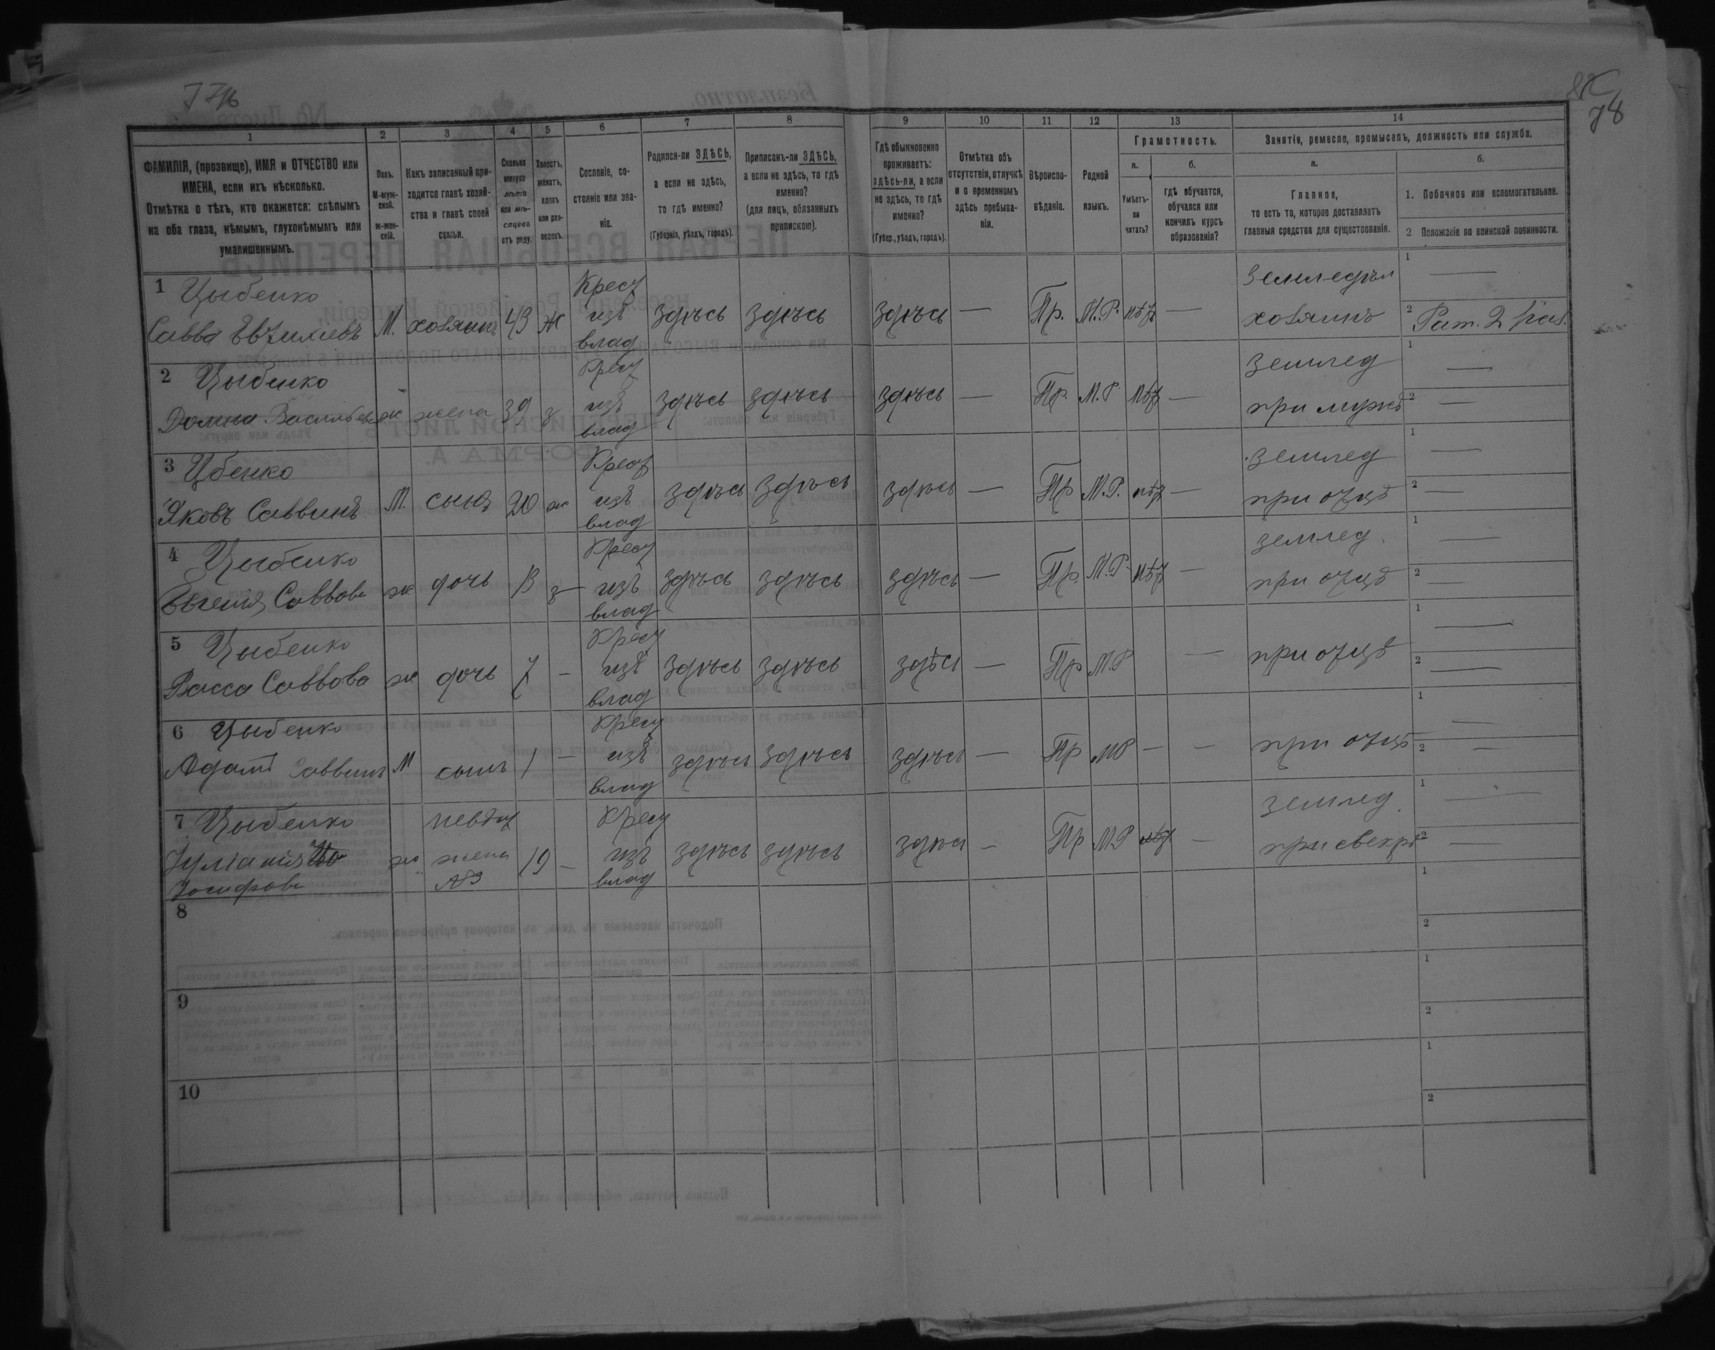 77
78
1
2
3
4
5
6
7
8
9
10
11
12
13
14
ФАМИЛІЯ, (прозвище), ИМЯ и ОТЧЕСТВО или
ИМЕНА, если ихъ нѣсколько.
Отмѣтка о тѣхъ, кто окажется: слѣпымъ
на оба глаза, нѣмымъ, глухонѣмымъ или
умалишеннымъ.
Полъ.
М-муж-
ской.
ж-жен-
скій.
Какъ записанный при-
ходится главѣ хозяй-
ства и главѣ своей
семьи.
Сколько
минуло
лѣтъ
или мѣ-
сяцевъ
отъ роду.
Холостъ,
женатъ,
вдовъ
или раз-
веденъ.
Сословіе, со-
стояніе или зва-
ніе.
Родился-ли ЗДѢСЬ,
а если не здѣсь,
то гдѣ именно?
(Губернія, уѣздъ, городъ).
Приписанъ-ли ЗДѢСЬ,
а если не здѣсь, то гдѣ
именно?
(для лицъ, обязанныхъ
припискою).
Гдѣ обыкновенно
проживаетъ:
здѣсь-ли, а если
не здѣсь, то гдѣ
именно?
(Губер., уѣздъ, городъ).
Отмѣтка объ
отсутствіи, отлучкѣ
и о временномъ
здѣсь пребыва-
ніи.
Вѣроиспо-
вѣданіе.
Родной
языкъ.
Грамотность.
а.
Умѣетъ-
ли
читать?
б.
гдѣ обучается,
обучался или
кончилъ курсъ
образованія?
Занятіе, ремесло, промыселъ, должность или служба.
а.
Главное,
то есть то, которое доставляетъ
главныя средства для существованія.
б.
1. Побочное или вспомогательное.
2 Положеніе по воинской повинности.
1 Цыбенко
Савва М. хозяинъ 49 ж Крест изъ влад здѣсь здѣсь здѣсь — Пр. М.Р. нѣт —
земледѣл
хозяинъ
1 —
2 Рат. 2 раз.
2 Цыбенко
Домна ж жена 39 з Крест изъ влад здѣсь здѣсь здѣсь — Пр М.Р нѣт —
землед
при мужѣ
1 —
2 —
3 Цбенко
Яковъ Саввинъ М. сынъ 20 ж Крест изъ влад здѣсь здѣсь здѣсь — Пр М.Р. нѣт —
землед
при отцѣ
1 —
2 —
4 Цыбенко
Саввова ж дочь з Крест изъ влад здѣсь здѣсь здѣсь — Пр М.Р. нѣт —
землед.
при отцѣ
1 —
2 —
5 Цыбенко
Васса Саввова ж дочь 7 — Крест изъ влад здѣсь здѣсь здѣсь — Пр М.Р —
при отцѣ
1 —
2 —
6 Цыбенко
Адамъ Саввинъ М сынъ 1 — Крест изъ влад здѣсь здѣсь здѣсь — Пр МР — —
при отцѣ
1 —
2 —
7 Цыбенко
Іуліанія
Іосифова ж невѣст жена №3 19 — Крест изъ влад здѣсь здѣсь здѣсь — Пр М.Р нѣт —
землед.
при свекрѣ
1 —
2 —
8
1
2
9
1
2
10
1
2